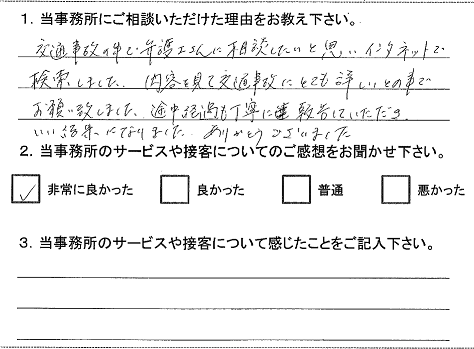 1. 当事務所にご相談いただけた理由をお教え下さい。
交通事故の事で弁護士さんに相談したいと思いインタネットで
検索しました。内容を見て交通事故にとても詳しいとの事で
お願い致しました。途中経過も丁寧に報告していただき
いい結果になりました。ありがとうございました
2. 当事務所のサービスや接客についてのご感想をお聞かせ下さい。
非常に良かった 良かった 普通 悪かった
3. 当事務所のサービスや接客について感じたことをご記入下さい。